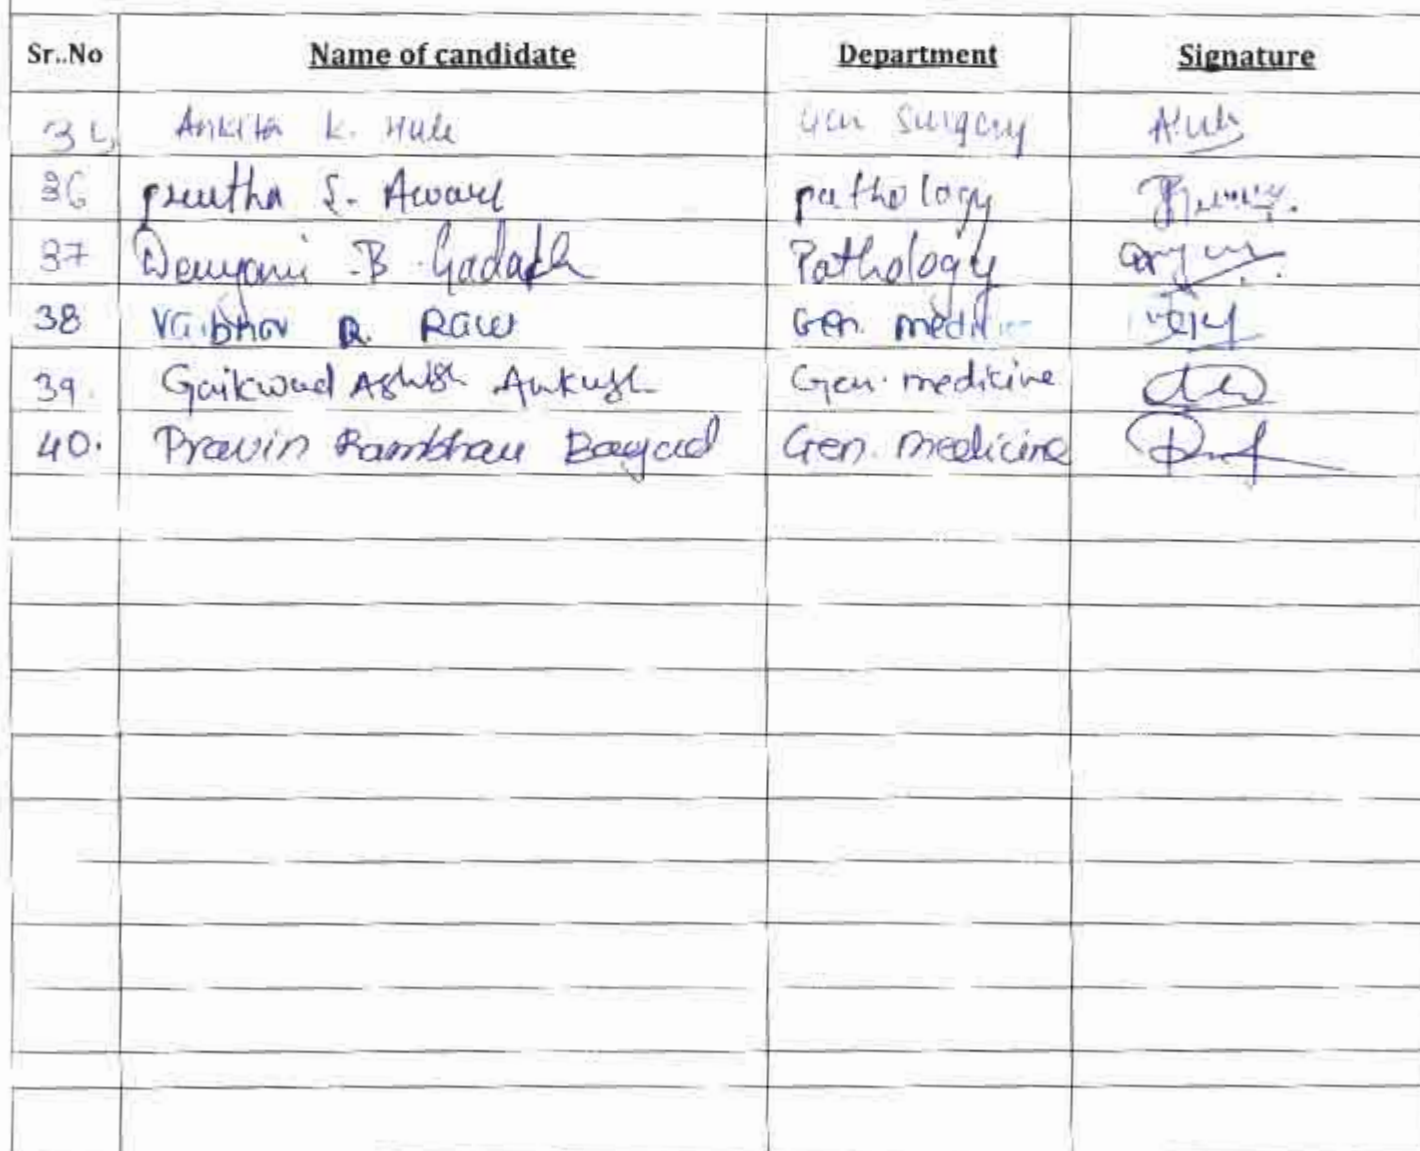 Sr..No Name of candidate Department Signature
Ankita K. Hule Gen Surgery
36 S. Aware pathology
37 B Gadakh Pathology
38 Vaibhav R. Gen.
39. Gaikwad Ashish Ankush Gen. medicine
40. Pravin Rambhau Bayad Gen. medicine